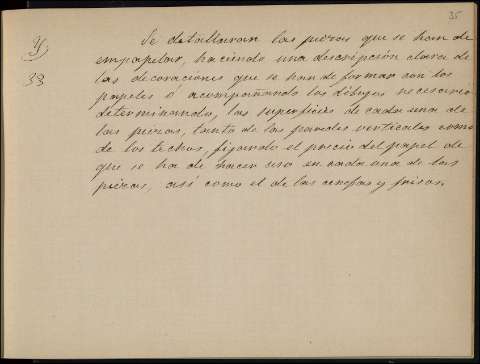 35
Y)
33
Se detallaran las piezas que se han de
empapelar, haciendo una descripción clara de
las decoraciones que se han de formar con los
papeles ó acompañando los dibujos necesarios
determinando, las superficies de cada una de
las piezas, tanto de las paredes verticales como
de los techos, fijando el precio del papel de
que se ha de hacer uso en cada una de las
piezas, así como el de las cenefas y frisos.